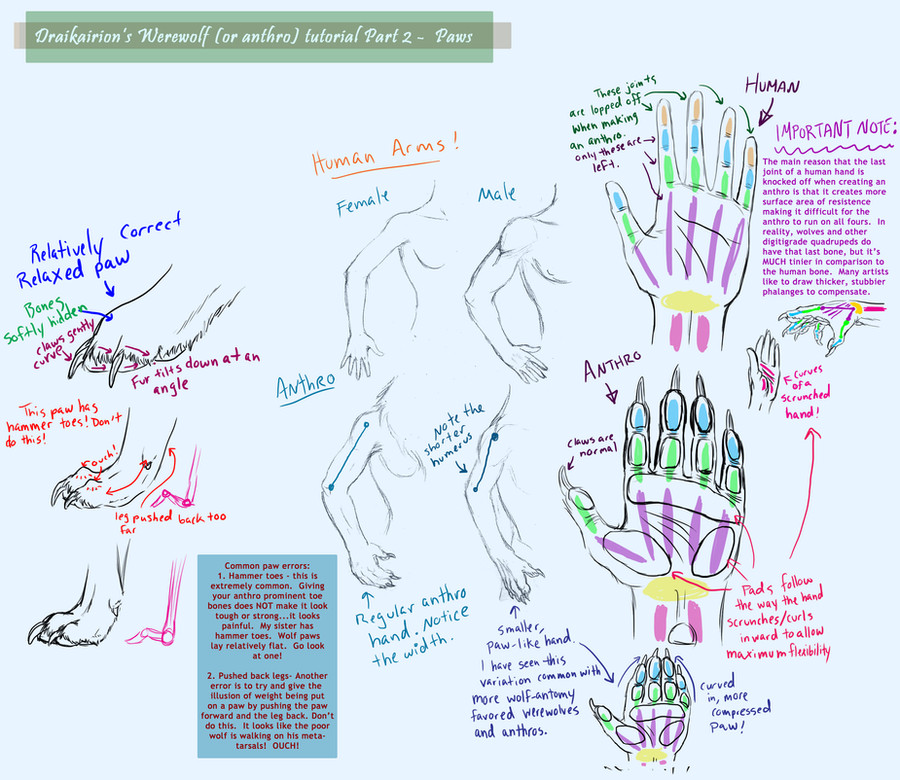 Draikairion's Werewolf (or anthro) tutorial Part 2 - Paws
These joints
are lopped off
when making
an anthro.
only these are
left.
HUMAN
IMPORTANT NOTE:
The main reason that the last
joint of a human hand is
knocked off when creating an
anthro is that it creates more
surface area of resistence
making it difficult for the
anthro to run on all fours. In
reality, wolves and other
digitigrade quadrupeds do
have that last bone, but it's
MUCH tinier in comparison to
the human bone. Many artists
like to draw thicker, stubbier
phalanges to compensate.
Human Arms!
Female
Male
Relatively Correct
Relaxed paw
Bones,
softly hidden
claws gently
curve
Fur tilts down at an
angle
ANTHRO
Note the
shorter
humerus
ANTHRO
claws are
normal
curves
of a
scrunched
hand!
This paw has
hammer toes! Don't
do this!
ouch!
leg pushed back too
far
Common paw errors:
1. Hammer toes - this is
extremely common. Giving
your anthro prominent toe
bones does NOT make it look
tough or strong...it looks
painful. My sister has
hammer toes. Wolf paws
lay relatively flat. Go look
at one!
2. Pushed back legs- Another
error is to try and give the
illusion of weight being put
on a paw by pushing the paw
forward and the leg back. Don't
do this. It looks like the poor
wolf is walking on his meta-
tarsals! OUCH!
Regular anthro
hand. Notice
the width.
smaller,
paw-like hand.
I have seen this
variation common with
more wolf-antomy
favored werewolves
and anthros.
Pads follow
the way the hand
scrunches/curls
inward to allow
maximum flexibility
curved
in, more
compressed
paw!